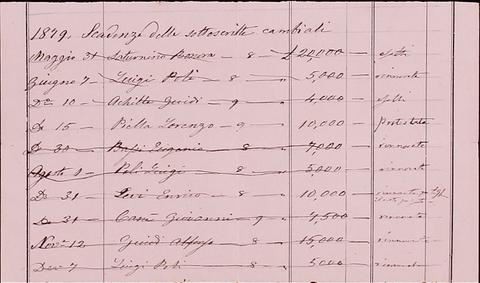 1879. Scadenze delle sottoscritte cambiali
Maggio 31 — Saturnino — 8 — £ 20,000 —
Giugno 7 — Luigi Poli — 8 — 5,000 — rinnovata
Do 10 — Achille Guidi — 9 — 4,000 —
Do 15 — Piella Lorenzo — 9 — 10,000 — protestata
Do 30 — Eugenia — 8 — 7,000 — rinnovata
Agosto — Poli Luigi — 8 — 5,000 — rinnovata
Do 31 — Levi Enrico — 8 — 10,000 — rinnovata
Do 31 — Giovanni — 9 — 4,500 — rinnovata
Nove 12 — Guidi — 8 — 15,000 — rinnovata
Dece 7 — Luigi Poli — 8 — 5,000 — rinnovata